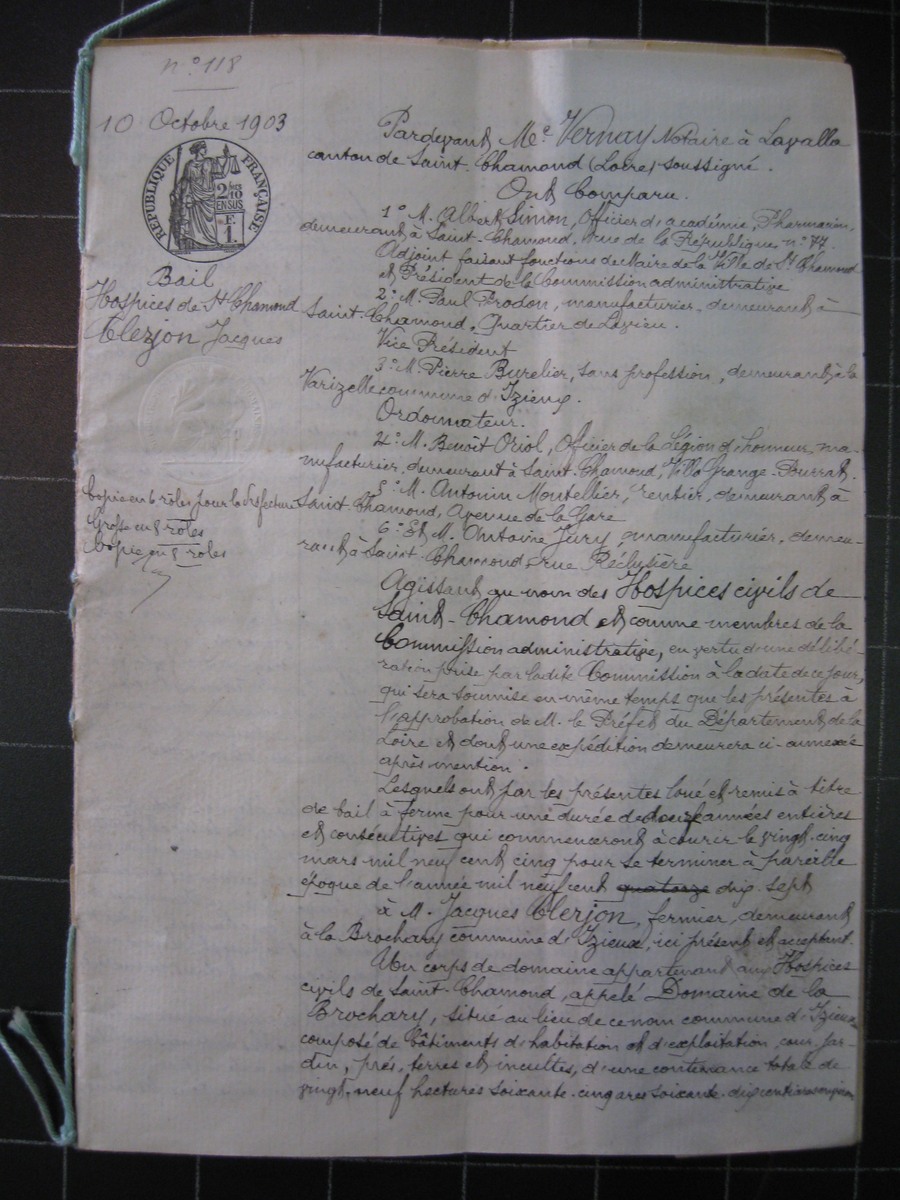 n° 118
10 Octobre 1903
RÉPUBLIQUE FRANÇAISE
2/10
EN SUS
F.
1.
Bail
Hospices de St Chamond
Clerjon Jacques
Copie en 6 rôles pour la Préfecture
Grosse en 8 rôles
Copie en 8 rôles
Pardevant Me Vernay Notaire à Lavalla
canton de Saint-Chamond (Loire) soussigné.
Ont Comparu.
1° M. Albert Simon, Officier d'académie, Pharmacien,
demeurant à Saint-Chamond, rue de la République, n° 77.
Adjoint faisant fonctions de Maire de la Ville de St Chamond
et Président de la Commission administrative
2° M. Paul Prodon, manufacturier, demeurant à
Saint-Chamond, Quartier de Lavieu.
Vice Président
3° M. Pierre Burelier, sans profession, demeurant à la
Varizelle commune d'Izieux.
Ordonnateur.
4° M. Benoît Oriol, Officier de la Légion d'honneur, ma-
nufacturier, demeurant à Saint-Chamond, Villa Grange-Pourrat.
5° M. Antonin Montellier, rentier, demeurant à
Saint-Chamond, Avenue de la Gare
6° Et M. Antoine Jury, manufacturier, demeu-
rant à Saint-Chamond, rue Réclusière
Agissant au nom des Hospices civils de
Saint-Chamond et comme membres de la
Commission administrative, en vertu d'une délibé-
ration prise par ladite Commission à la date de ce jour,
qui sera soumise en même temps que les présentes à
l'approbation de M. le Préfet du Département de la
Loire et dont une expédition demeurera ci-annexée
après mention.
Lesquels ont par les présentes loué et remis à titre
de bail à ferme pour une durée de douze années entières
et consécutives qui commenceront à courir le vingt-cinq
mars mil neuf cent cinq pour se terminer à pareille
époque de l'année mil neuf cent quatorze dix-sept
à M. Jacques Clerjon, fermier, demeurant
à la Brochary commune d'Izieux, ici présent et acceptant.
Un corps de domaine appartenant aux Hospices
civils de Saint-Chamond, appelé Domaine de la
Brochary, situé au lieu de ce nom commune d'Izieux
composé de bâtiments d'habitation et d'exploitation, cour, jar-
din, prés, terres et incultes, d'une contenance totale de
vingt-neuf hectares soixante-cinq ares soixante-dix centiares